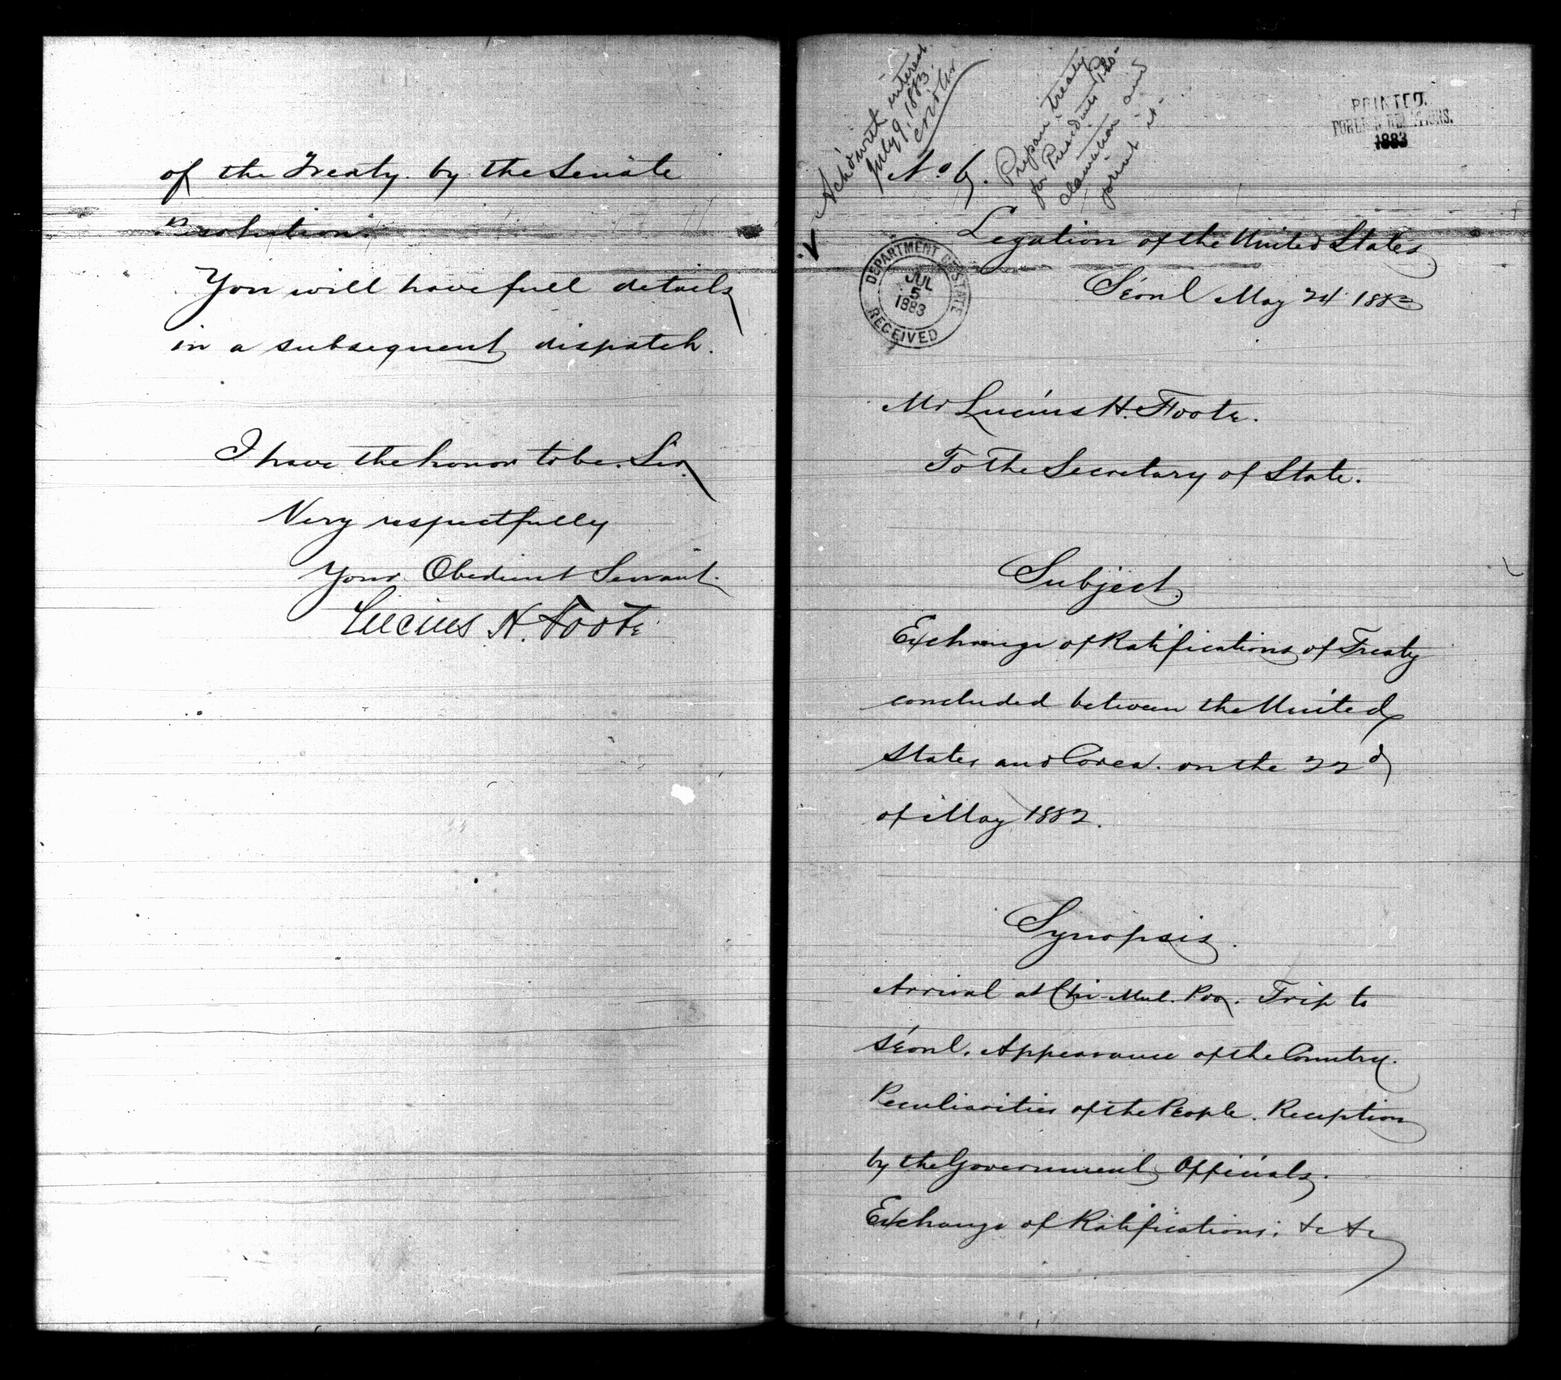 of the Treaty by the Senate
Resolution.
You will have full details
in a subsequent dispatch.
I have the honor to be. Sir
Very respectfully
Your Obedient Servant.
Lucius H. Foote
Ack'd with interest
July 9, 1883.
Prepare treaty
for President's Pro-
clamation and
print it-
PRINTED.
FOREIGN RELATIONS.
1883
No 6.
Legation of the United States
Séoul May 24 1883
DEPARTMENT OF STATE
JUL
5
1883
RECEIVED
Mr Lucius H. Foote.
To the Secretary of State.
Subject.
Exchange of Ratifications of Treaty
concluded between the United
States and Corea. on the 22d
of May 1882.
Synopsis.
Arrival at Chi-Mul. Poo. Trip to
Séoul. Appearance of the Country.
Peculiarities of the People. Reception
by the Government Officials.
Exchange of Ratifications; &c &c